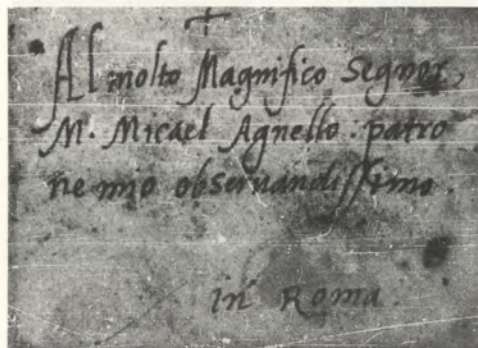 Al molto Magnifico Segnor,
M. Micael Agnello: patro
ne mio observandissimo.
in Roma.